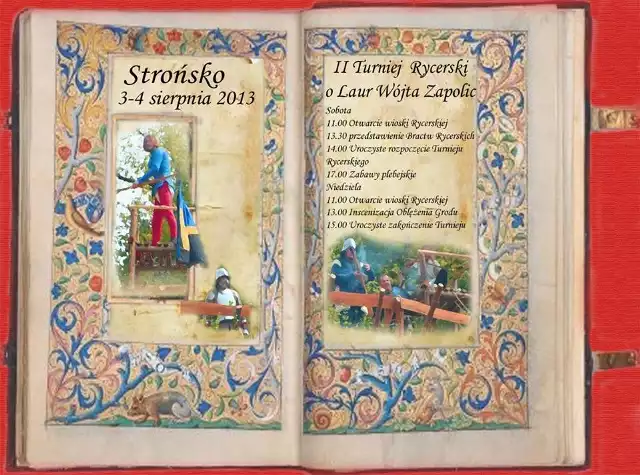 Strońsko
3-4 sierpnia 2013
II Turniej Rycerski
o Laur Wójta Zapolic
Sobota
11.00 Otwarcie wioski Rycerskiej
13.30 przedstawienie Bractw Rycerskich
14.00 Uroczyste rozpoczęcie Turnieju
Rycerskiego
17.00 Zabawy plebejskie
Niedziela
11.00 Otwarcie wioski Rycerskiej
13.00 Inscenizacja Oblężenia Grodu
15.00 Uroczyste zakończenie Turnieju